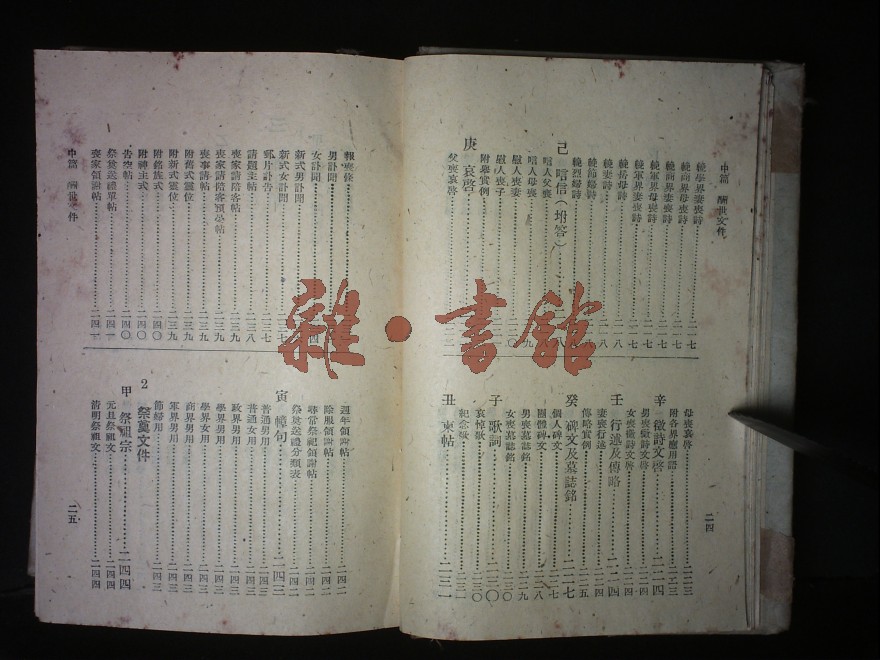 中篇 酬世文件
輓學界妻喪詩……二一七
輓商界母喪詩……二一七
輓商界妻喪詩……二一七
輓軍界母喪詩……二一七
輓軍界妻喪詩……二一七
輓岳母詩
輓妻詩
輓節婦詩
輓烈婦詩
己 唁信（坿答）
唁人父喪
唁人母喪
慰人喪妻
慰人喪子
附舉實例
庚 哀啓
父喪哀啓
母喪哀啓……二二三
附各界應用語……二二三
辛 徵詩文啓……二二四
男喪徵詩文啓……二二四
女喪徵詩文啓……二二四
壬 行述及傳略……二二四
妻喪行述……二二四
傳略實例……二二五
癸 碑文及墓誌銘……二二七
個人碑文……二二七
團體碑文……二二八
男喪墓誌銘……二二九
女喪墓誌銘……二三〇
子 歌詞……二三〇
哀悼歌……二三〇
紀念歌
丑 柬帖……二三一
二四
報喪條
男訃聞
女訃聞
新式男訃聞
新式女訃聞
郵片訃告……二三七
請題主帖……二三八
喪家請陪客帖……二三九
喪家請陪客預學帖……二三九
喪事請帖……二三九
附舊式靈位……二三九
附新式靈位……二三九
附銘旌式……二四〇
附神主式……二四〇
告窆帖……二四〇
祭奠送禮單帖……二四一
喪家領謝帖……二四一
中篇 酬世文件
週年領謝帖
除服領謝帖
尋常祭祀領謝帖
祭奠送禮分類表
寅 幛句……二四二
普通男用……二四三
普通女用……二四三
政界男用……二四三
學界男用……二四三
學界女用……二四三
商界男用……二四三
軍界男用……二四三
節婦用……二四三
2 祭奠文件
甲 祭祖宗……二四四
元旦祭祖文……二四四
清明祭祖文……二四四
二五
雜·書館